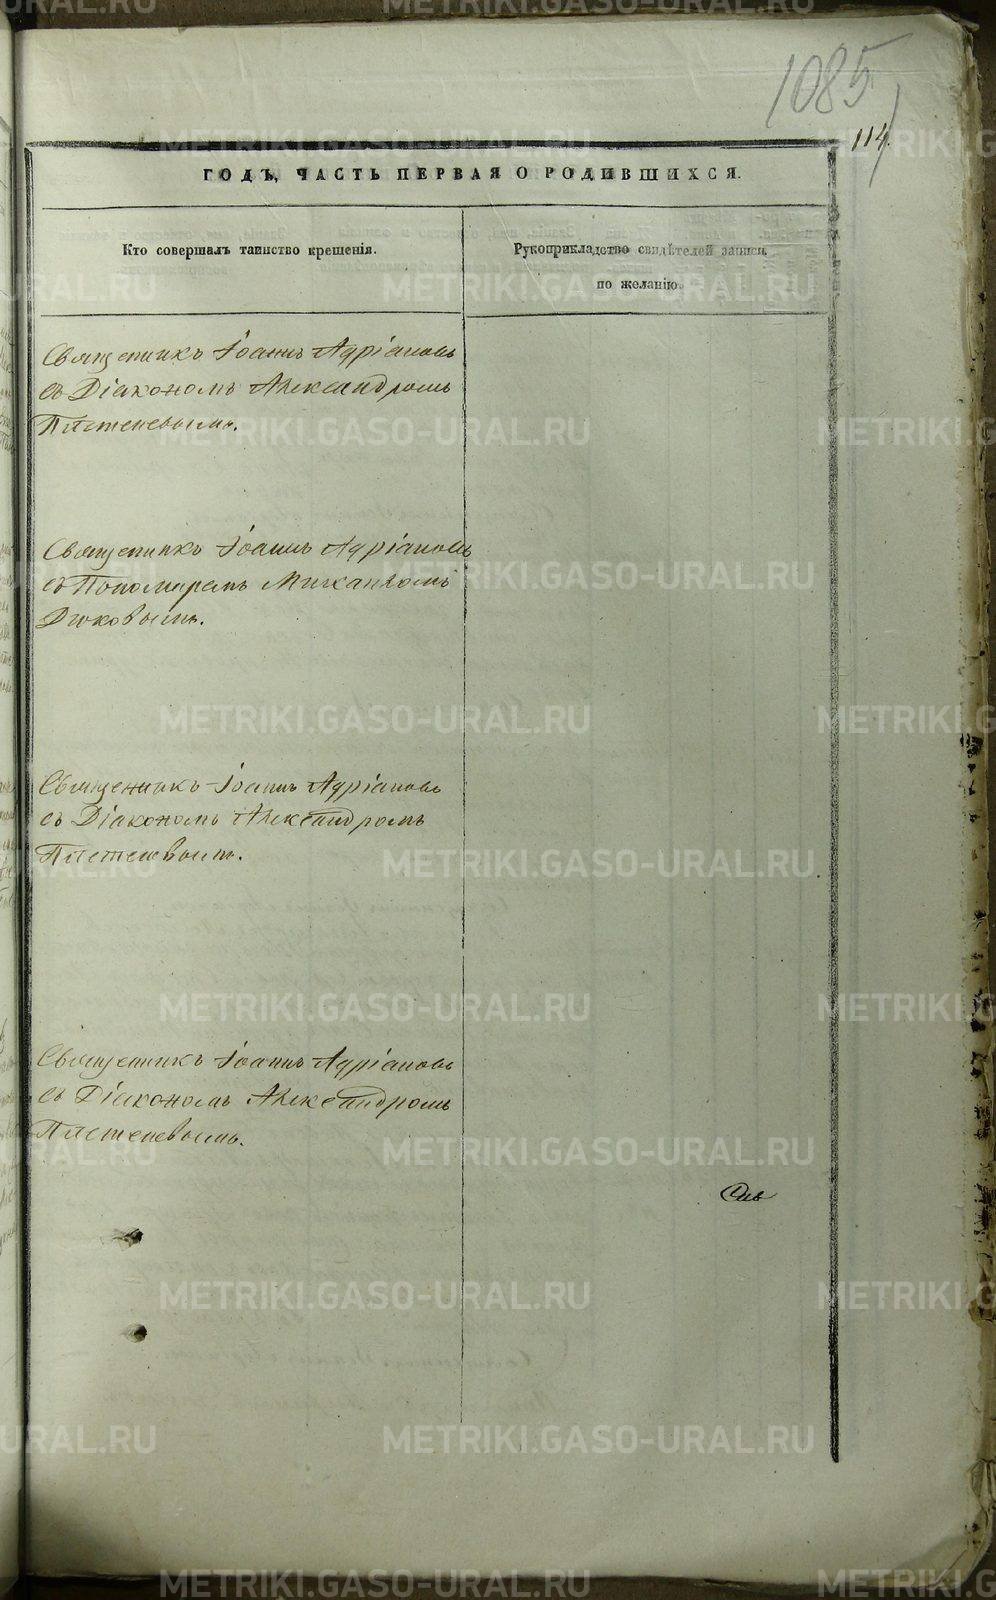 1085
114.
ГОДЪ, ЧАСТЬ ПЕРВАЯ О РОДИВШИХСЯ.
Кто совершалъ таинство крещенія.
Рукоприкладство свидѣтелей записи
по желанію.
Священникъ Іоаннъ Адріановъ
съ Діакономъ Александромъ
Плетеневымъ.
Священникъ Іоаннъ Адріановъ
съ Пономаремъ Михаиломъ
Дюковымъ.
Священникъ Іоаннъ Адріановъ
съ Діакономъ Александромъ
Плетеневымъ.
Священникъ Іоаннъ Адріановъ
съ Діакономъ Александромъ
Плетеневымъ.
METRIKI.GASO-URAL.RU